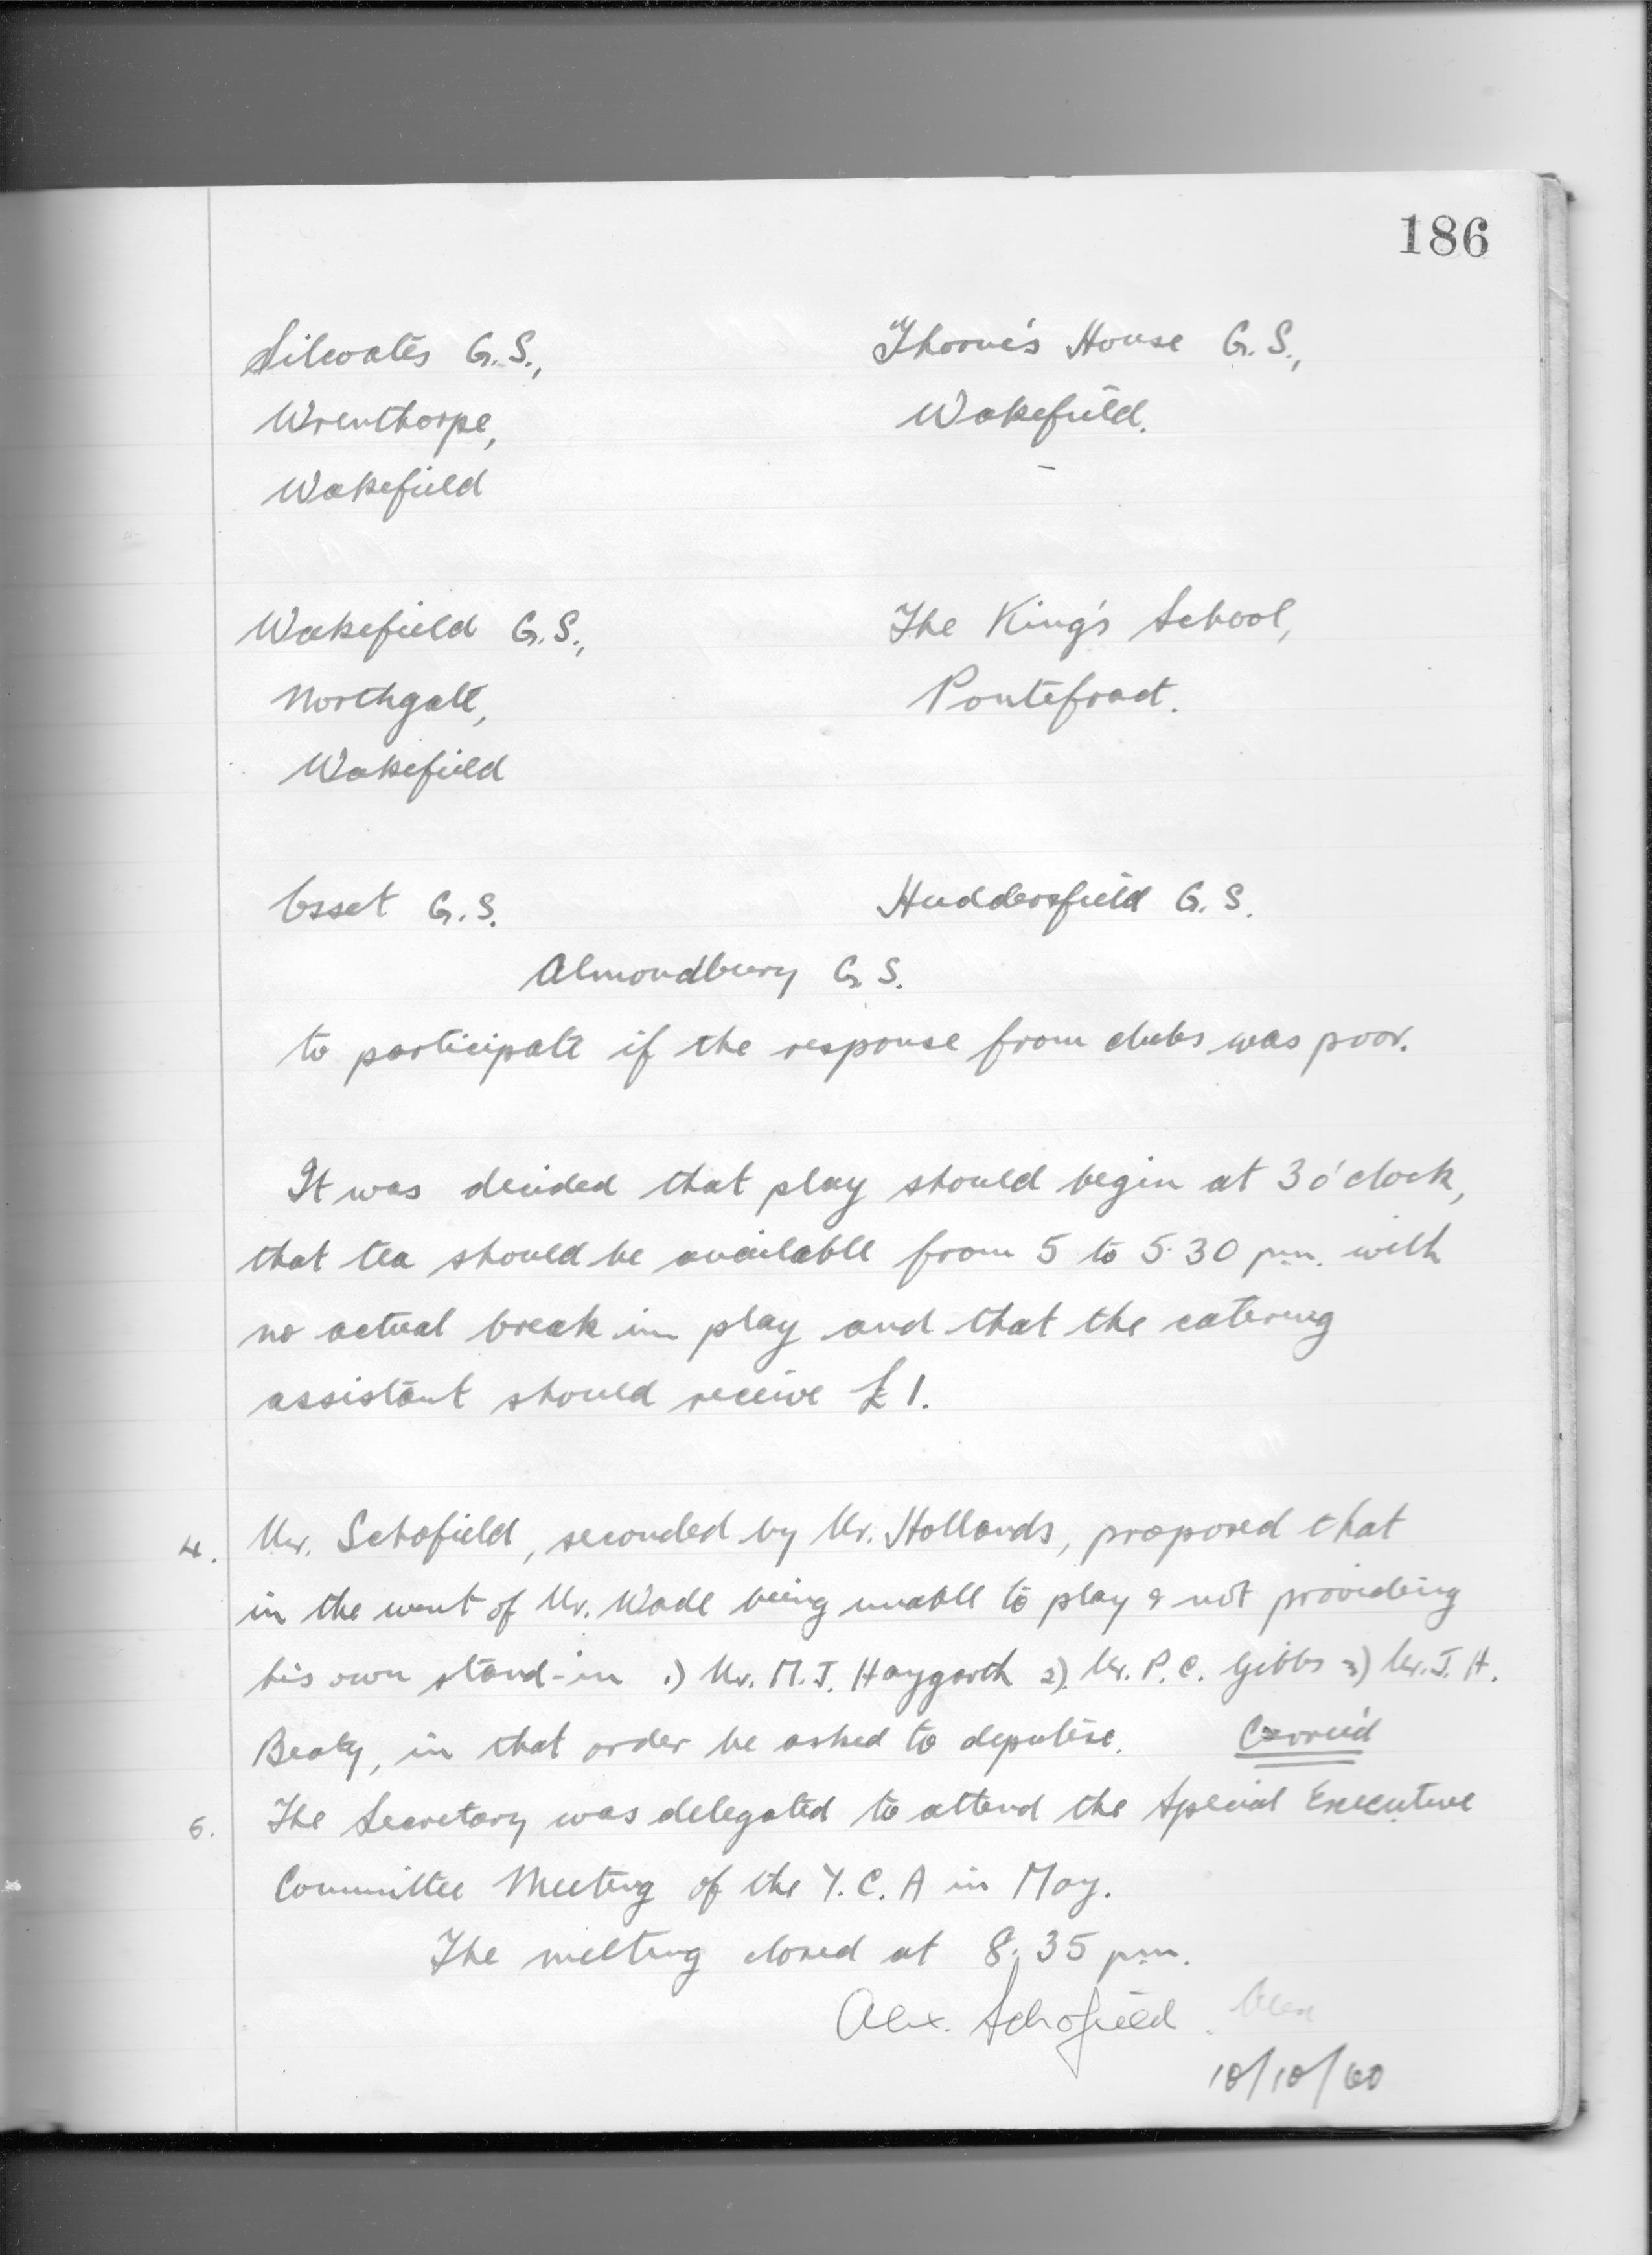 186
Silcoates G.S., Thorne's House G.S.,
Wrenthorpe, Wakefield.
Wakefield
Wakefield G.S., The King's School,
Northgate, Pontefract.
Wakefield
Osset G.S. Huddersfield G.S.
Almondbury G.S.
to participate if the response from clubs was poor.
It was decided that play should begin at 3 o'clock,
that tea should be available from 5 to 5.30 p.m. with
no actual break in play and that the catering
assistant should receive £1.
4. Mr. Schofield, seconded by Mr. Hollands, proposed that
in the event of Mr. Wade being unable to play & not providing
his own stand-in 1) Mr. M.J. Haygarth 2). Mr. P.C. Gibbs 3) Mr. J.H.
Beaty, in that order be asked to deputise. Carried
5. The Secretary was delegated to attend the Special Executive
Committee Meeting of the Y.C.A in May.
The meeting closed at 8.35 p.m.
Alex. Schofield
10/10/60